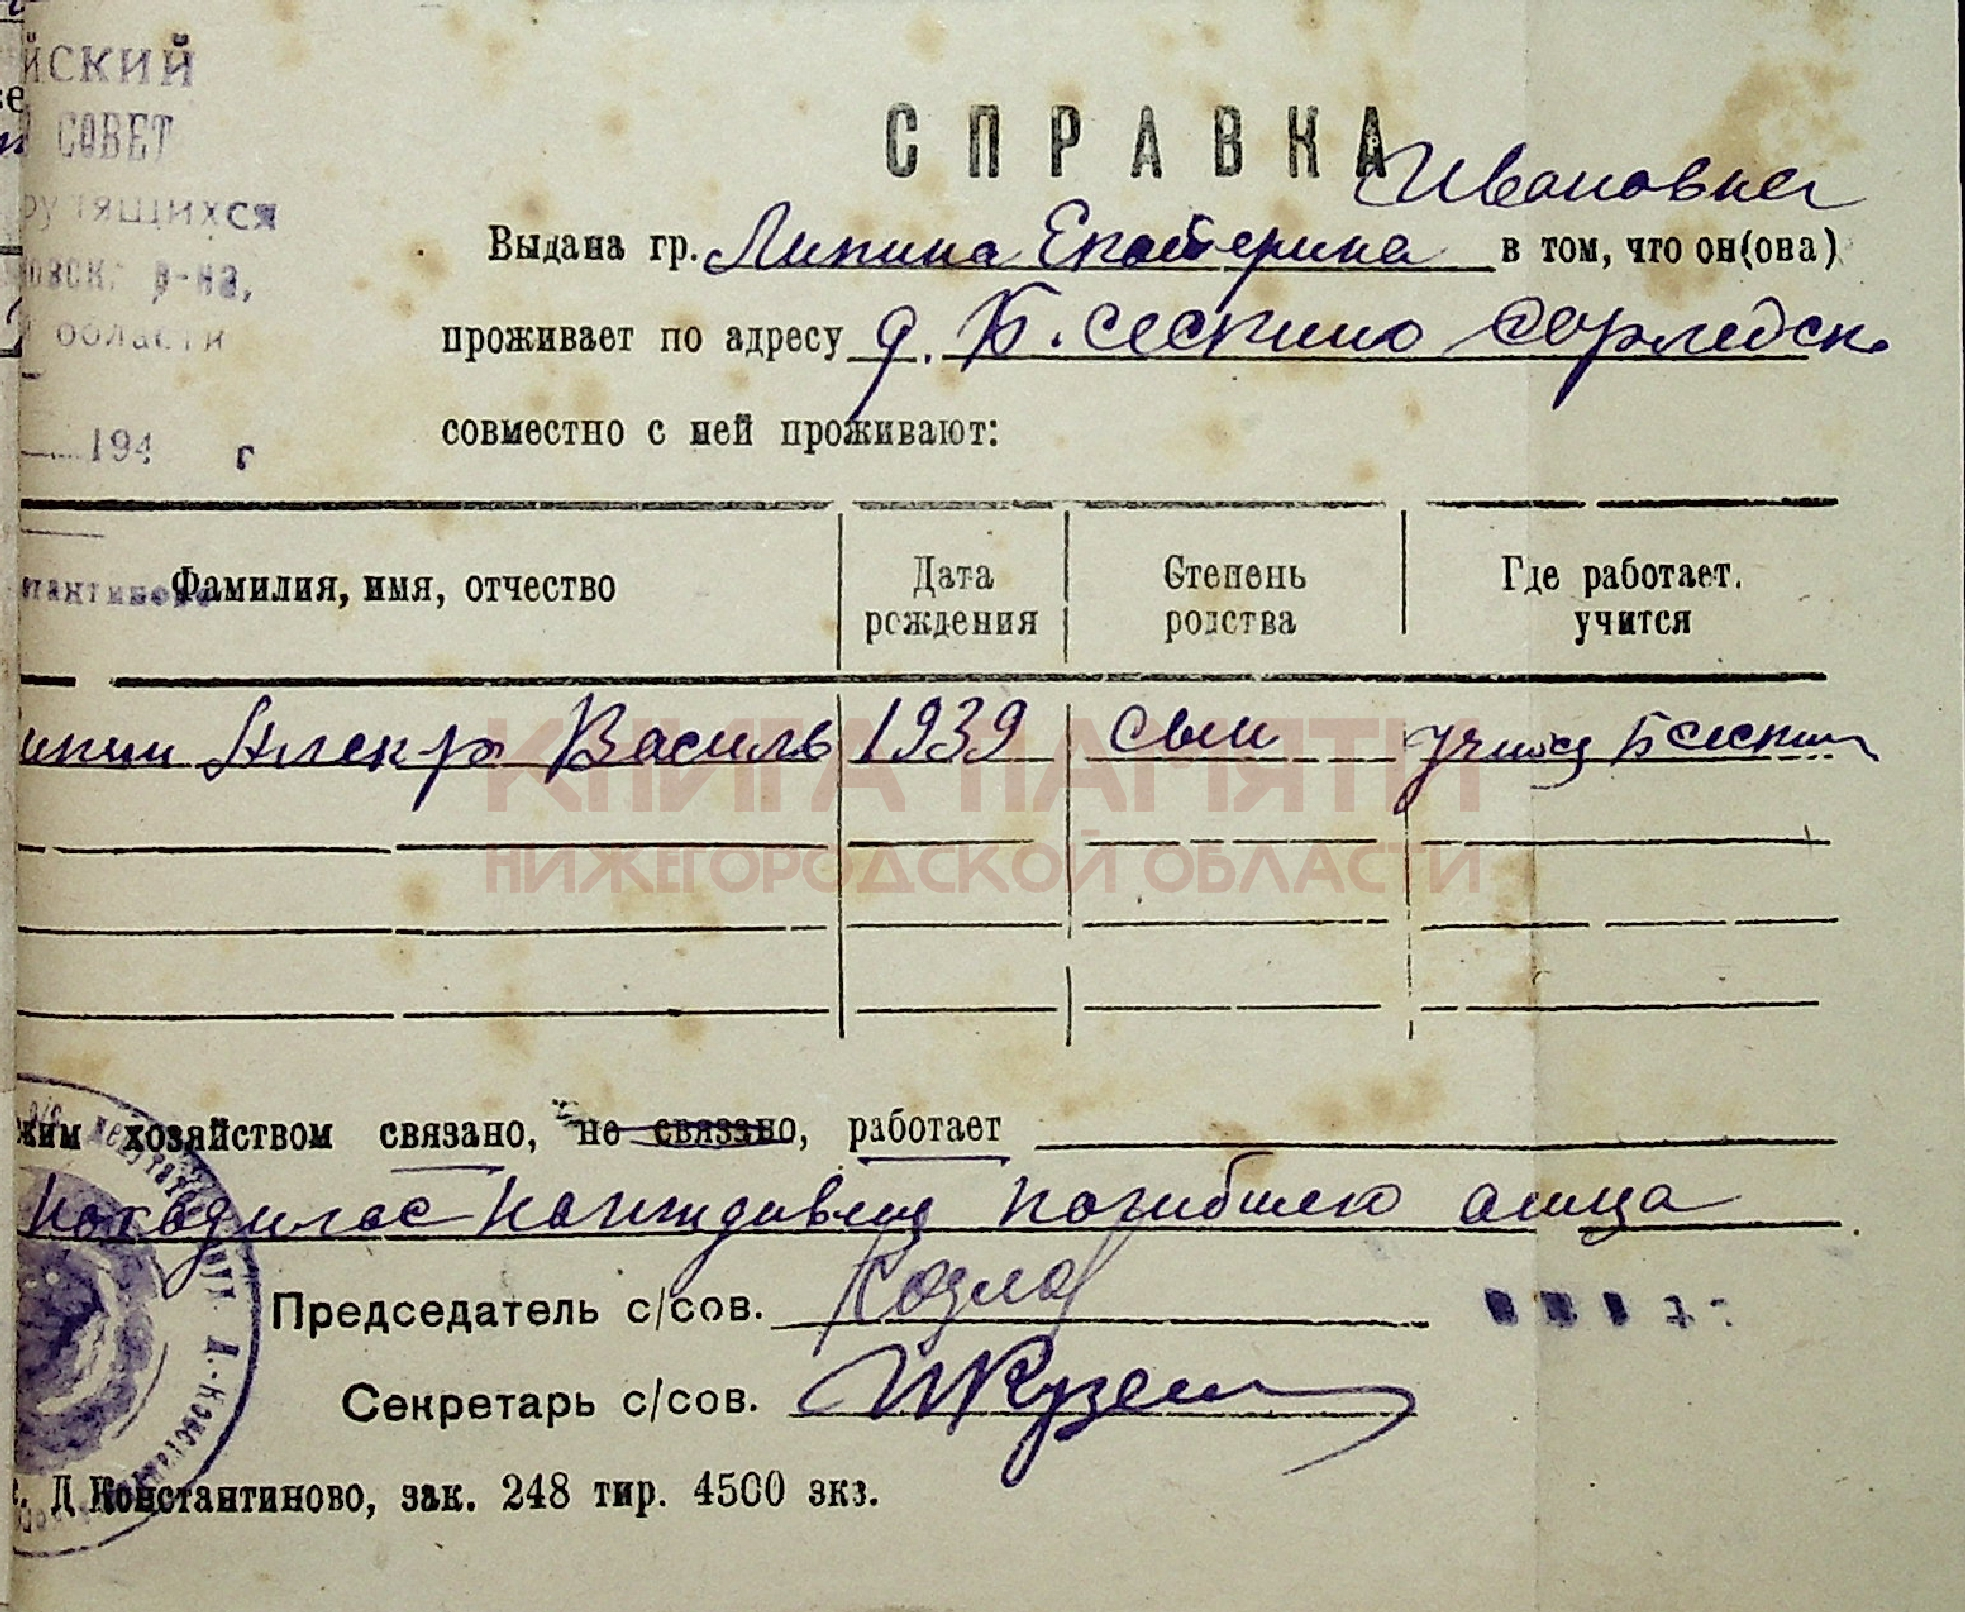 йский
СОВЕТ
рудящихся
р-на,
области
194 г
СПРАВКА
Ивановна
Выдана гр. Липина Екатерина в том, что он(ова)
проживает по адресу д. Б. Сескино
совместно с ней проживают:
Фамилия, имя, отчество
Дата рождения
Степень родства
Где работает. учится
ипин Алекр Василь 1939 сын учится Б Сескин
КНИГА ПАМЯТИ
НИЖЕГОРОДСКОЙ ОБЛАСТИ
хозяйством связано, не связано, работает
иждивении погибшего отца
Председатель с/сов. Козлов
Секретарь с/сов.
Д Константиново, зак. 248 тир. 4500 экз.